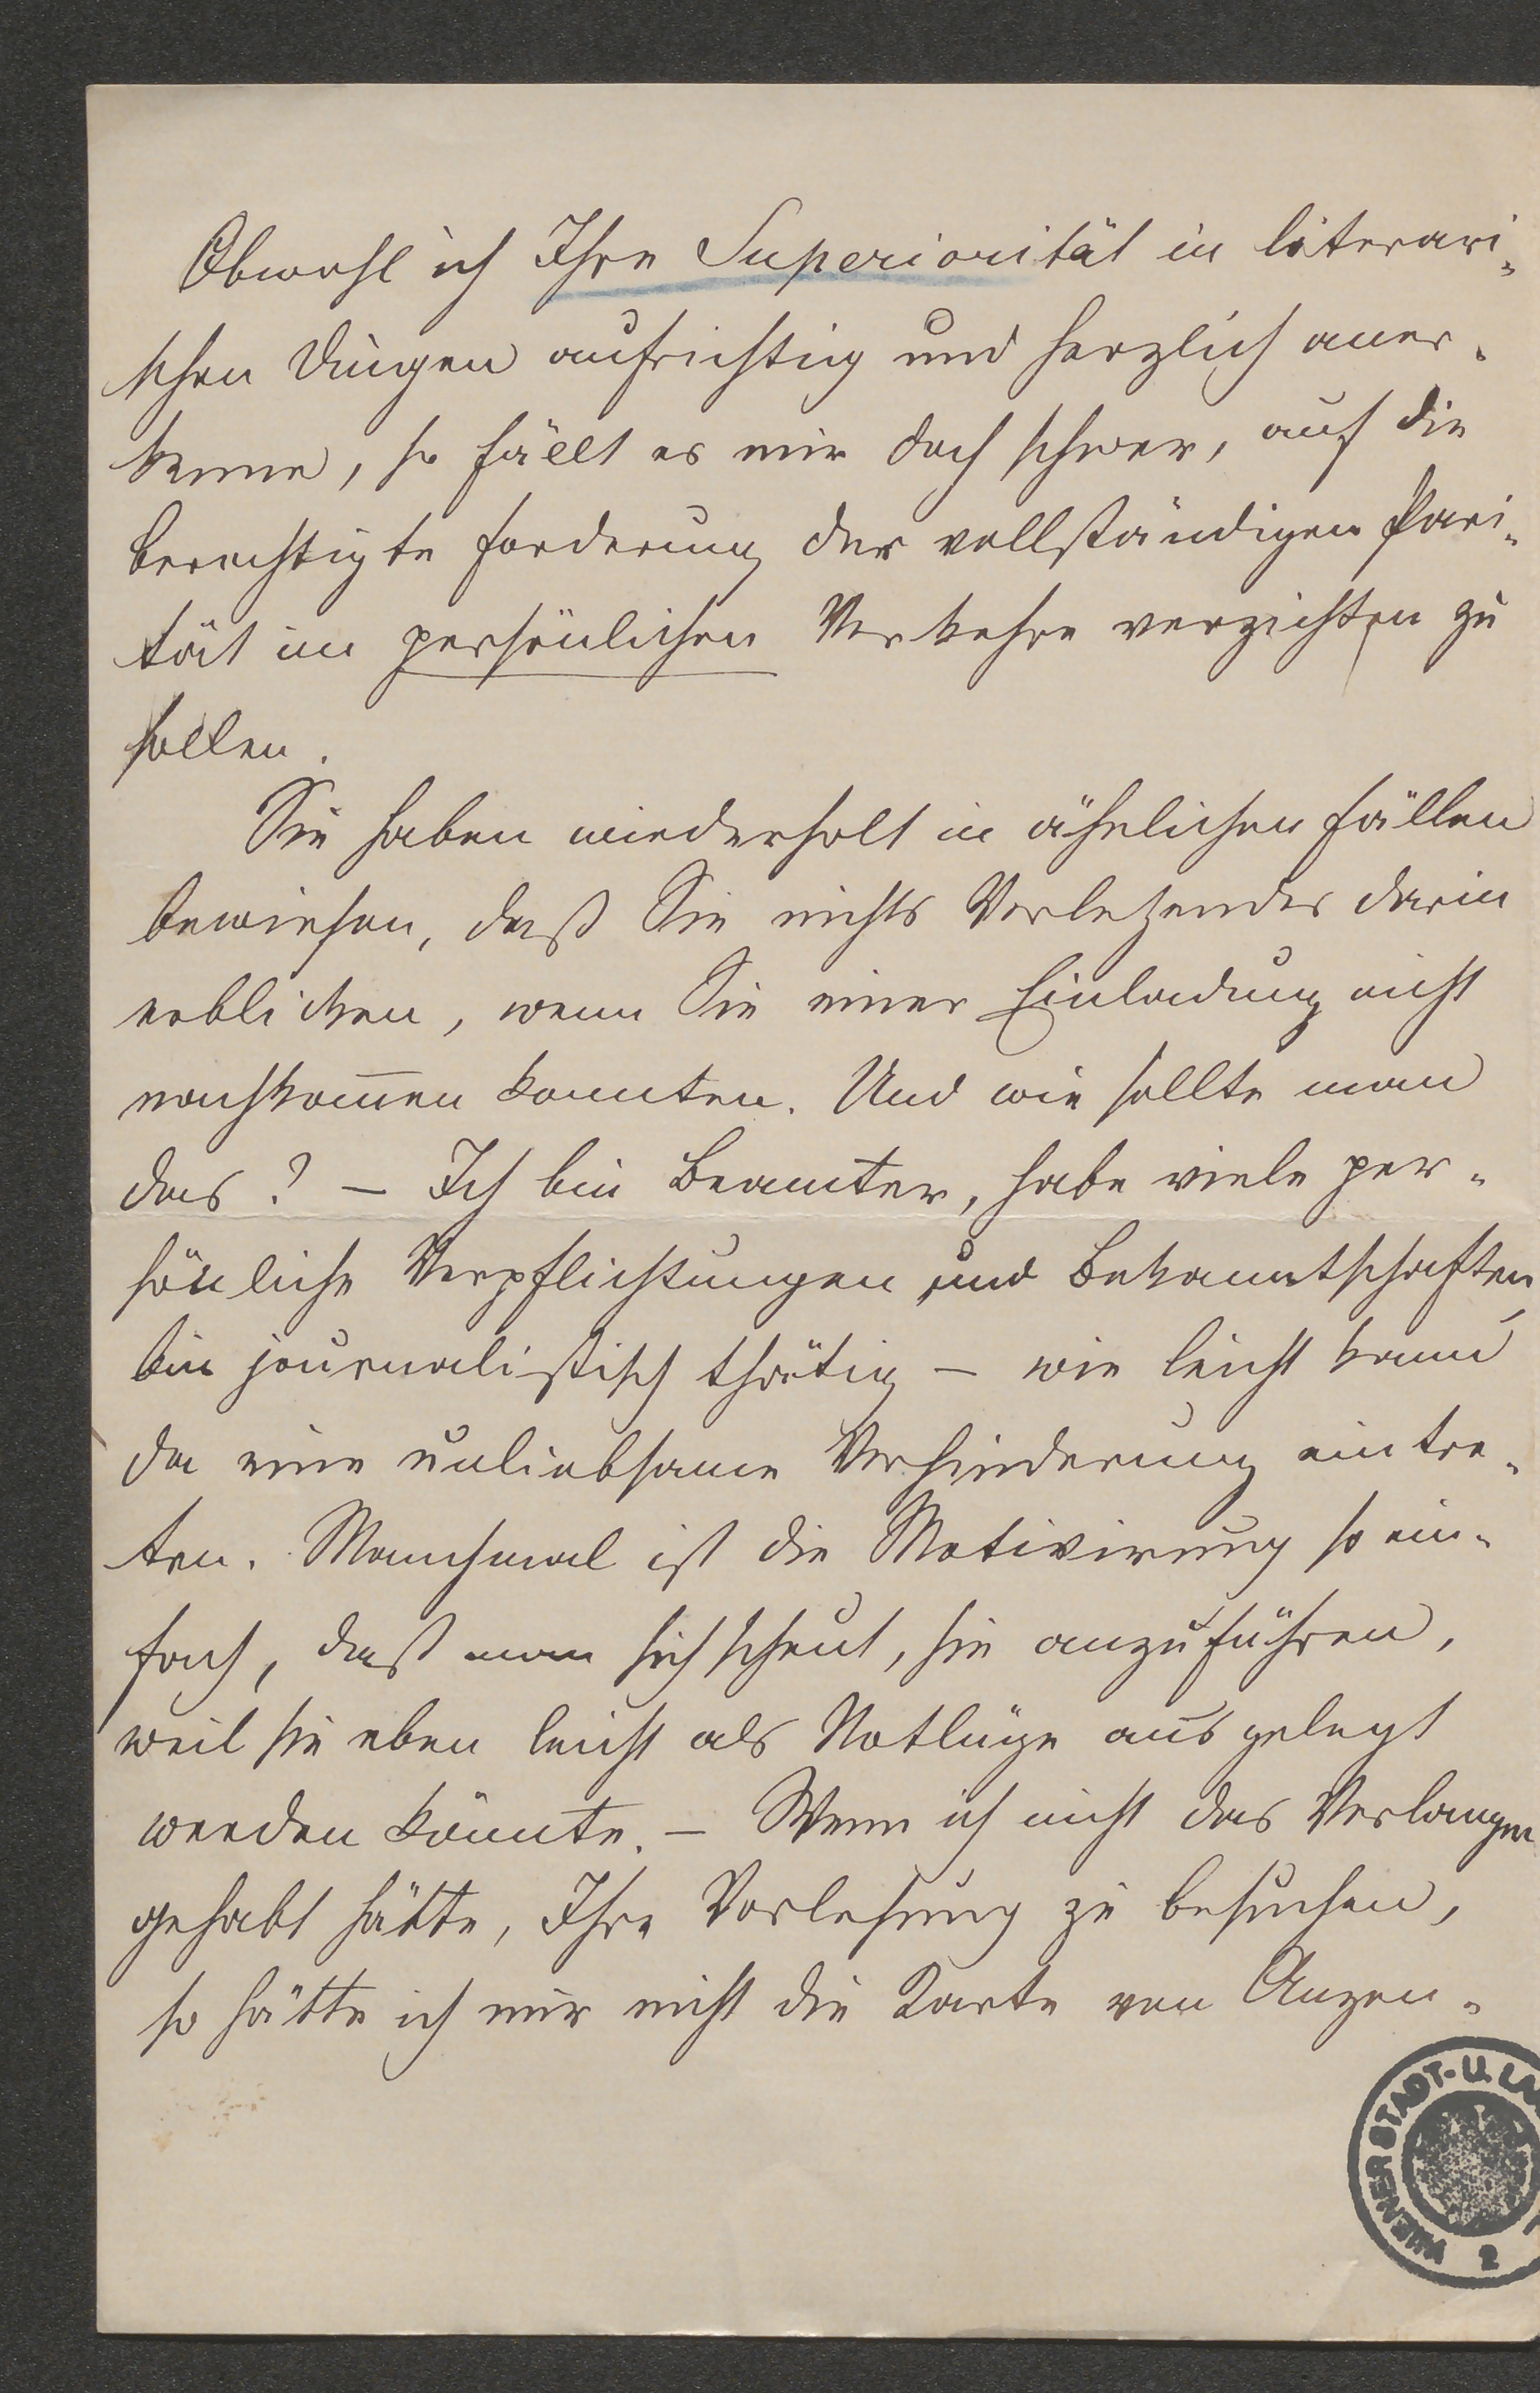 Obwohl ich Ihre Superiorität in literari-
schen Dingen aufrichtig und herzlich aner-
kenne, so fällt es mir doch schwer, auf die
berechtigte Forderung der vollständigen Pari-
tät im persönlichen Verkehre verzichten zu
sollen.
Sie haben wiederholt in ähnlichen Fällen
bewiesen, daß Sie nichts Verletzendes darin
erblicken, wenn Sie einer Einladung nicht
nachkom̅en konnten. Und wie sollte man
das? – Ich bin Beamter, habe viele per-
sönliche Verpflichtungen und Bekanntschaften,
bin journalistisch thätig – wie leicht kann
da eine unliebsame Verhinderung eintre-
ten. Manchmal ist die Motivirung so ein-
fach, daß man sich scheut, sie anzuführen,
weil sie eben leicht als Notlüge ausgelegt
werden könnte. – Wenn ich nicht das Verlangen
gehabt hätte, Ihre Vorlesung zu besuchen,
so hätte ich mir nicht die Karte von Anzen-
WIENER STADT-U. LA
2